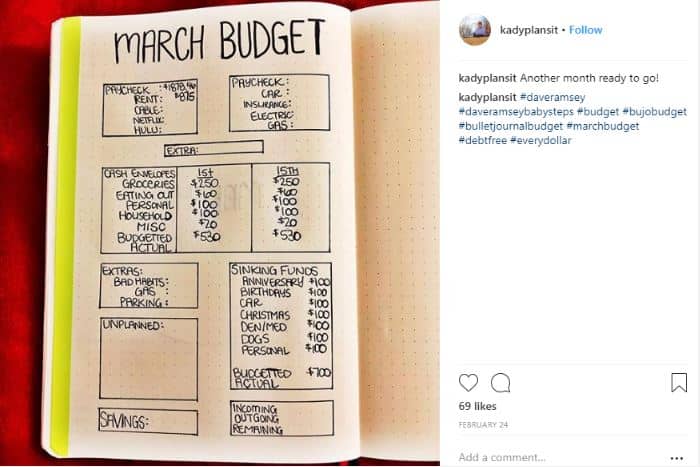 MARCH BUDGET
PAYCHECK :
RENT: $875
CABLE:
NETFLIX:
HULU:
PAYCHECK:
CAR :
INSURANCE:
ELECTRIC:
GAS:
EXTRA:
CASH ENVELOPES 1st 15TH
GROCERIES $250 $250
EATING OUT $60 $60
PERSONAL $100 $100
HOUSEHOLD $100 $100
MISC $20 $20
BUDGETTED $530 $530
ACTUAL
EXTRAS:
BAD HABITS:
GAS :
PARKING :
UNPLANNED:
SAVINGS:
SINKING FUNDS
ANNIVERSARY $100
BIRTHDAYS $100
CAR $100
CHRISTMAS $100
DEN/MED $100
DOGS $100
PERSONAL $100
BUDGETTED $700
ACTUAL
INCOMING
OUTGOING
REMAINING
kadyplansit • Follow
kadyplansit Another month ready to go!
kadyplansit #daveramsey
#daveramseybabysteps #budget #bujobudget
#bulletjournalbudget #marchbudget
#debtfree #everydollar
69 likes
FEBRUARY 24
Add a comment...